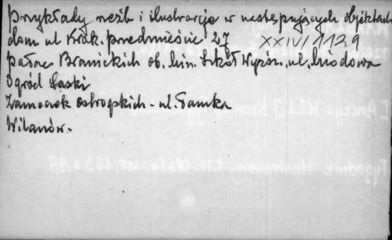 przykłady rzeźb i ilustracje w następujących objektach
dom ul Krak. przedmieście 27 XXIV/1129
pałac Branickich ob. Min. Szkół Wyższ. ul. Miodowa
Ogród Saski
Zameczek Ostrogskich - ul. Tamka
Wilanów.